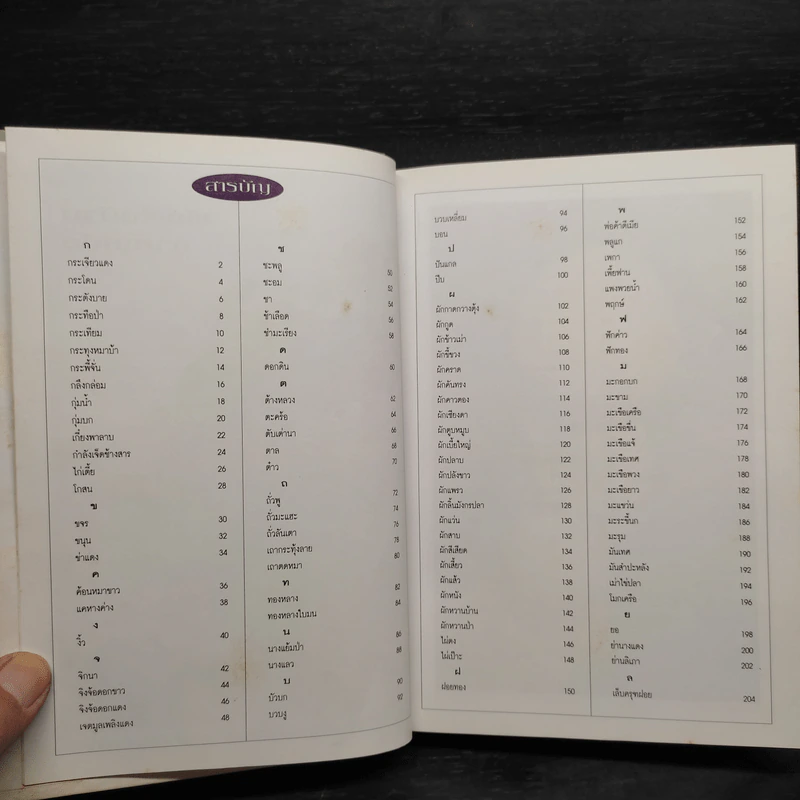 สารบัญ
ก
กระเจียวแดง 2
กระโดน 4
กระดังบาย 6
กระทือป่า 8
กระเทียม 10
กระทุงหมาบ้า 12
กระพี้จั่น 14
กลึงกล่อม 16
กุ่มน้ำ 18
กุ่มบก 20
เกี๋ยงพาลาบ 22
กำลังเจ็ดช้างสาร 24
ไก่เตี้ย 26
โกสน 28
ข
ขจร 30
ขนุน 32
ข่าแดง 34
ค
ค้อนหมาขาว 36
แคหางค่าง 38
ง
งิ้ว 40
จ
จิกนา 42
จิงจ้อดอกขาว 44
จิงจ้อดอกแดง 46
เจตมูลเพลิงแดง 48
ช
ชะพลู 50
ชะอม 52
ชา 54
ช้าเลือด 56
ชำมะเรียง 58
ด
ดอกดิน 60
ต
ต้างหลวง 62
ตะคร้อ 64
ตับเต่านา 66
ตาล 68
ต๋าว 70
ถ
ถั่วพู 72
ถั่วมะแฮะ 74
ถั่วลันเตา 76
เถากระทุ้งลาย 78
เถาตดหมา 80
ท
ทองหลาง 82
ทองหลางใบมน 84
น
นางแย้มป่า 86
นางแลว 88
บ
บัวบก 90
บวบงู 92
บวบเหลี่ยม 94
บอน 96
ป
ปีนแกล 98
ปีบ 100
ผ
ผักกาดกวางตุ้ง 102
ผักกูด 104
ผักข้าวเม่า 106
ผักขี้ขวง 108
ผักคราด 110
ผักคันทรง 112
ผักคาวตอง 114
ผักเชียงดา 116
ผักตูบหมูบ 118
ผักเบี้ยใหญ่ 120
ผักปลาบ 122
ผักปลังขาว 124
ผักแพรว 126
ผักลิ้นมังกรปลา 128
ผักแว่น 130
ผักสาบ 132
ผักสีเสียด 134
ผักเสี้ยว 136
ผักแส้ว 138
ผักหนัง 140
ผักหวานบ้าน 142
ผักหวานป่า 144
ไผ่ตง 146
ไผ่เป๊าะ 148
ฝ
ฝอยทอง 150
พ
พ่อค้าตีเมีย 152
พลูแก 154
เพกา 156
เพี้ยฟาน 158
แพงพวยน้ำ 160
พฤกษ์ 162
ฟ
ฟักค่าว 164
ฟักทอง 166
ม
มะกอกบก 168
มะขาม 170
มะเขือเครือ 172
มะเขือขื่น 174
มะเขือแจ้ 176
มะเขือเทศ 178
มะเขือพวง 180
มะเขือยาว 182
มะแขว่น 184
มะระขี้นก 186
มะรุม 188
มันเทศ 190
มันสำปะหลัง 192
เม่าไข่ปลา 194
โมกเครือ 196
ย
ยอ 198
ย่านางแดง 200
ย่านลิเภา 202
ล
เล็บครุฑฝอย 204